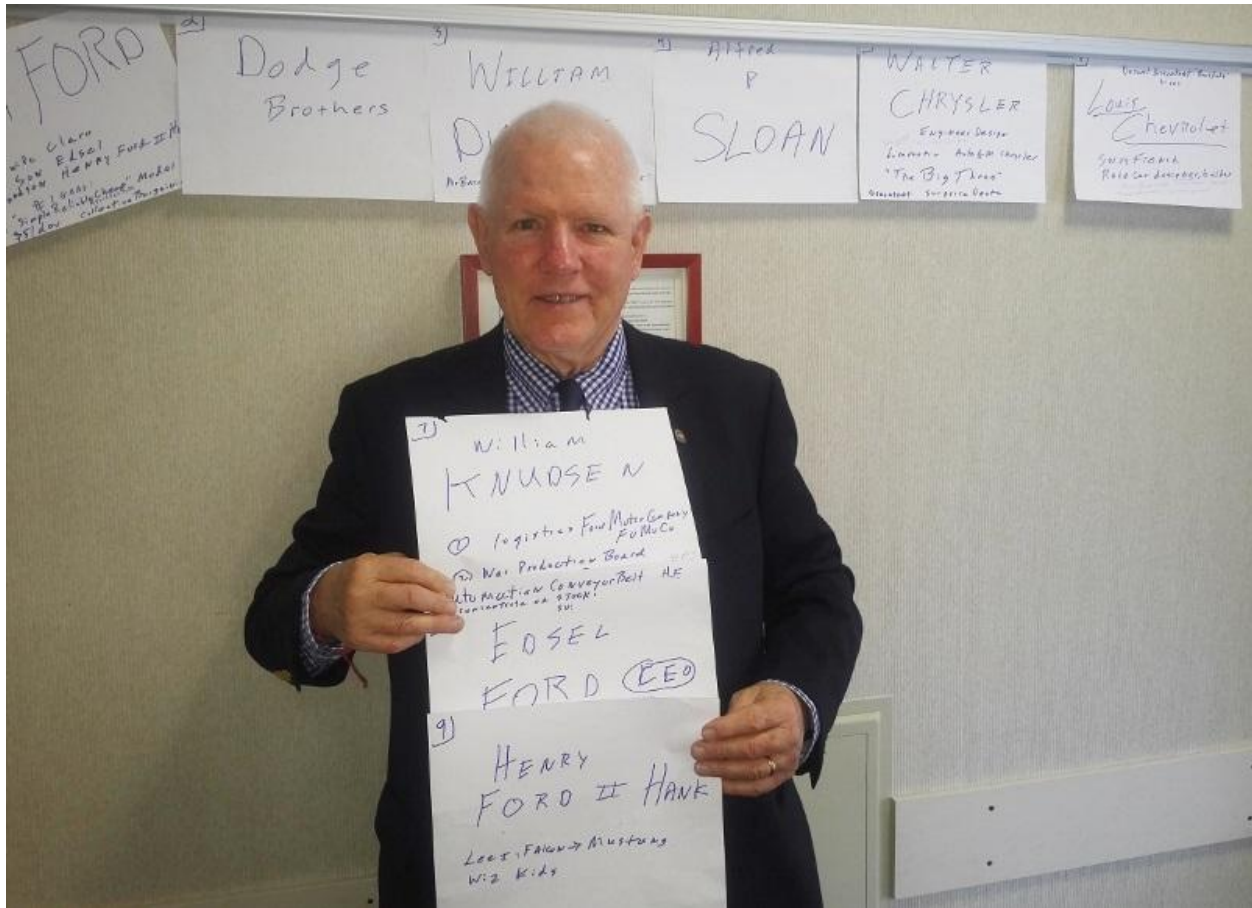 FORD
Clara
Son Edsel
Henry Ford II
"Simple Reliable Cheap" Model
$5/day Collective Bargain
2
Dodge
Brothers
3
WILLIAM
4
Alfred
P
SLOAN
WALTER
CHRYSLER
Engineer Design
Locomotive Auto GM Chrysler
"The Big Three"
Louis
Chevrolet
Swiss French
Race Car designer, builder
7
William
KNUDSEN
1 logistics Ford Motor Company
FoMoCo
2 War Production Board
Automation Conveyor Belt HE
EDSEL
FORD CEO
9
HENRY
FORD II HANK
Lee I: Falcon → Mustang
Wiz Kids